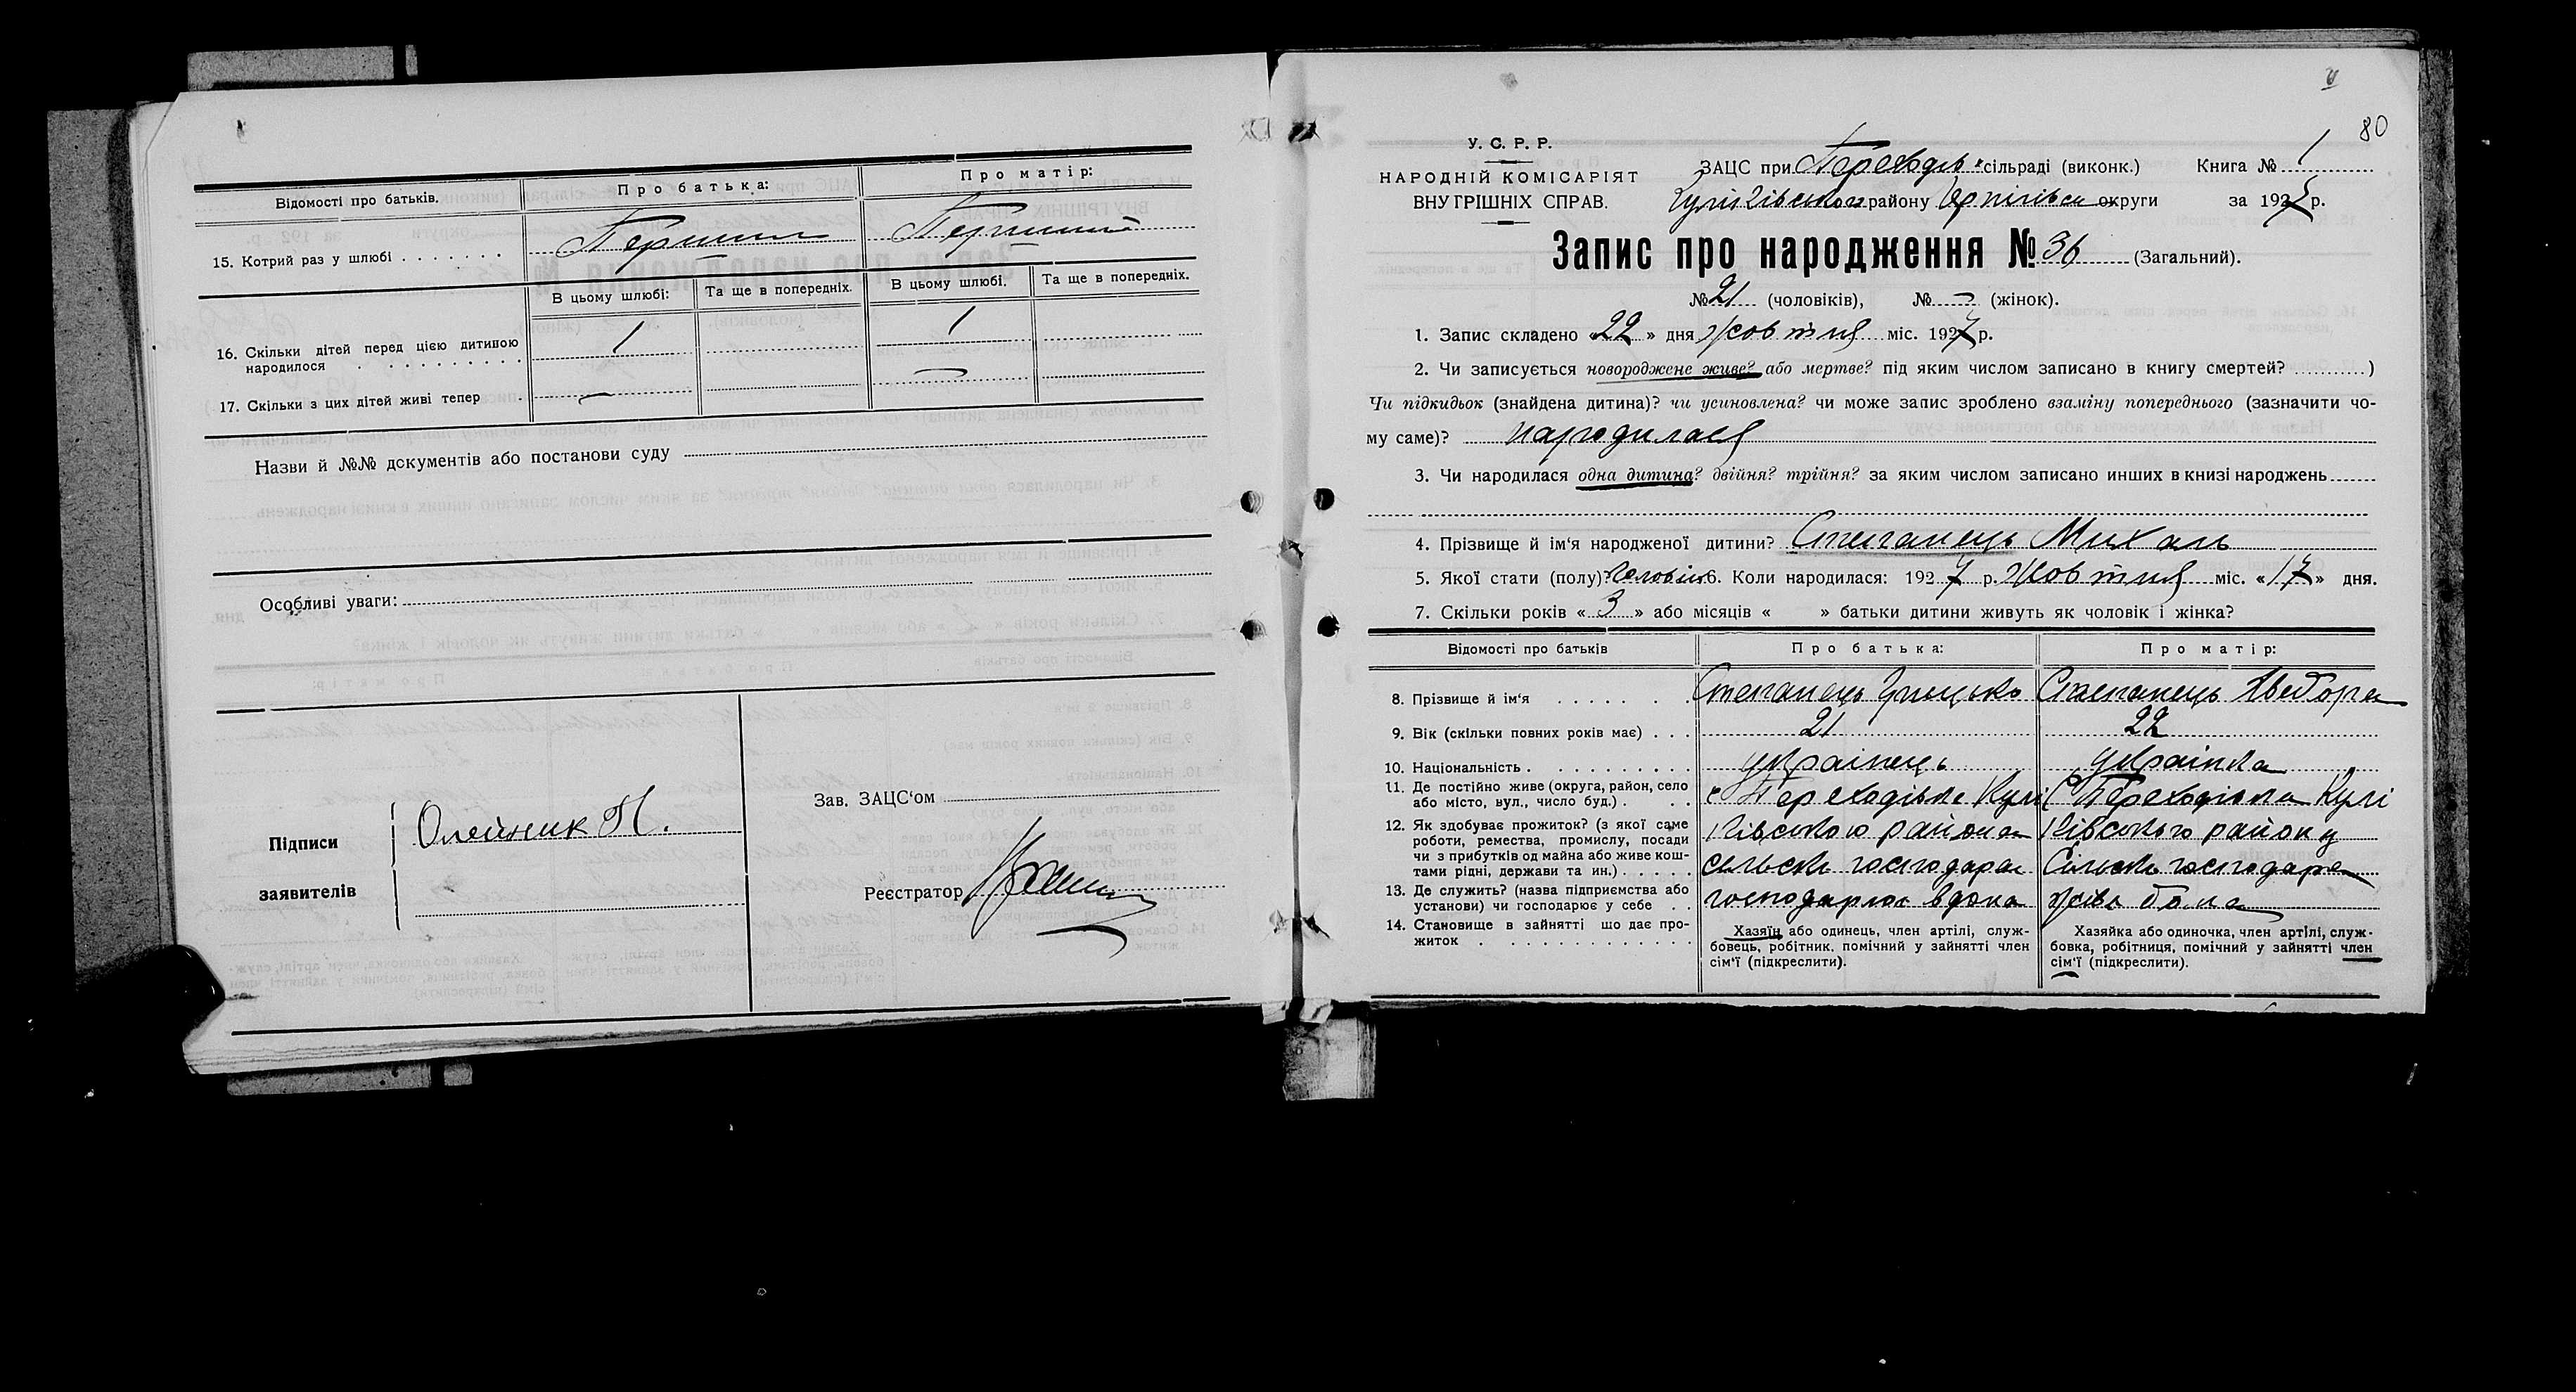 Відомості про батьків. Про батька: Про матір:
15. Котрий раз у шлюбі . . . . . . . Першии Першиий
В цьому шлюбі: Та ще в попередніх. В цьому шлюбі. Та ще в попередніх.
16. Скільки дітей перед цією дитиною
народилося . . . . . . . . . . 1 1
17. Скільки з цих дітей живі тепер . — —
Назви й №№ документів або постанови суду
Особливі уваги:
Підписи
заявителів
Олейник П.
Зав. ЗАЦС'ом
Реєстратор
80
У. С. Р. Р.
НАРОДНІЙ КОМІСАРІЯТ
ВНУТРІШНІХ СПРАВ.
ЗАЦС при Переходів сільраді (виконк.) Книга № 1
Куліківського району Чернігівськ округи за 1927 р.
Запис про народження № 36 (Загальний).
№ 21 (чоловіків), № — (жінок).
1. Запис складено «22» дня жовтня міс. 1927 р.
2. Чи записується новороджене живе? або мертве? під яким числом записано в книгу смертей? ............)
Чи підкидьок (знайдена дитина)? чи усиновлена? чи може запис зроблено взаміну попереднього (зазначити чо-
му саме)? народилася
3. Чи народилася одна дитина? двійня? трійня? за яким числом записано инших в книзі народжень
4. Прізвище й ім'я народженої дитини? Степанець Михаль
5. Якої стати (полу)? Чоловіч 6. Коли народилася: 1927 р. Жовтня міс. «17» дня.
7. Скільки років «3» або місяців « » батьки дитини живуть як чоловік і жінка?
Відомості про батьків Про батька: Про матір:
8. Прізвище й ім'я . . . . . . . Степанець Грицько Степанець Явдора
9. Вік (скільки повних років має) . . . 21 22
10. Національність . . . . . . . . . . українець українка
11. Де постійно живе (округа, район, село
або місто, вул., число буд.) . . . . с Переходівка Кулі С Переходівка Кулі
12. Як здобуває прожиток? (з якої саме
роботи, ремества, промислу, посади
чи з прибутків од майна або живе кош-
тами рідні, держави та ин.) . . . . .
ківського района ківського району
сельськ господара Сільськ господара
13. Де служить? (назва підприємства або
установи) чи господарює у себе . .
господарює вдома живе дома
14. Становище в зайнятті що дає про-
житок . . . . . . . . . . . . . .
Хазяїн або одинець, член артілі, служ-
бовець, робітник, помічний у зайнятті член
сім'ї (підкреслити).
Хазяйка або одиночка, член артілі, служ-
бовка, робітниця, помічний у зайнятті член
сім'ї (підкреслити).